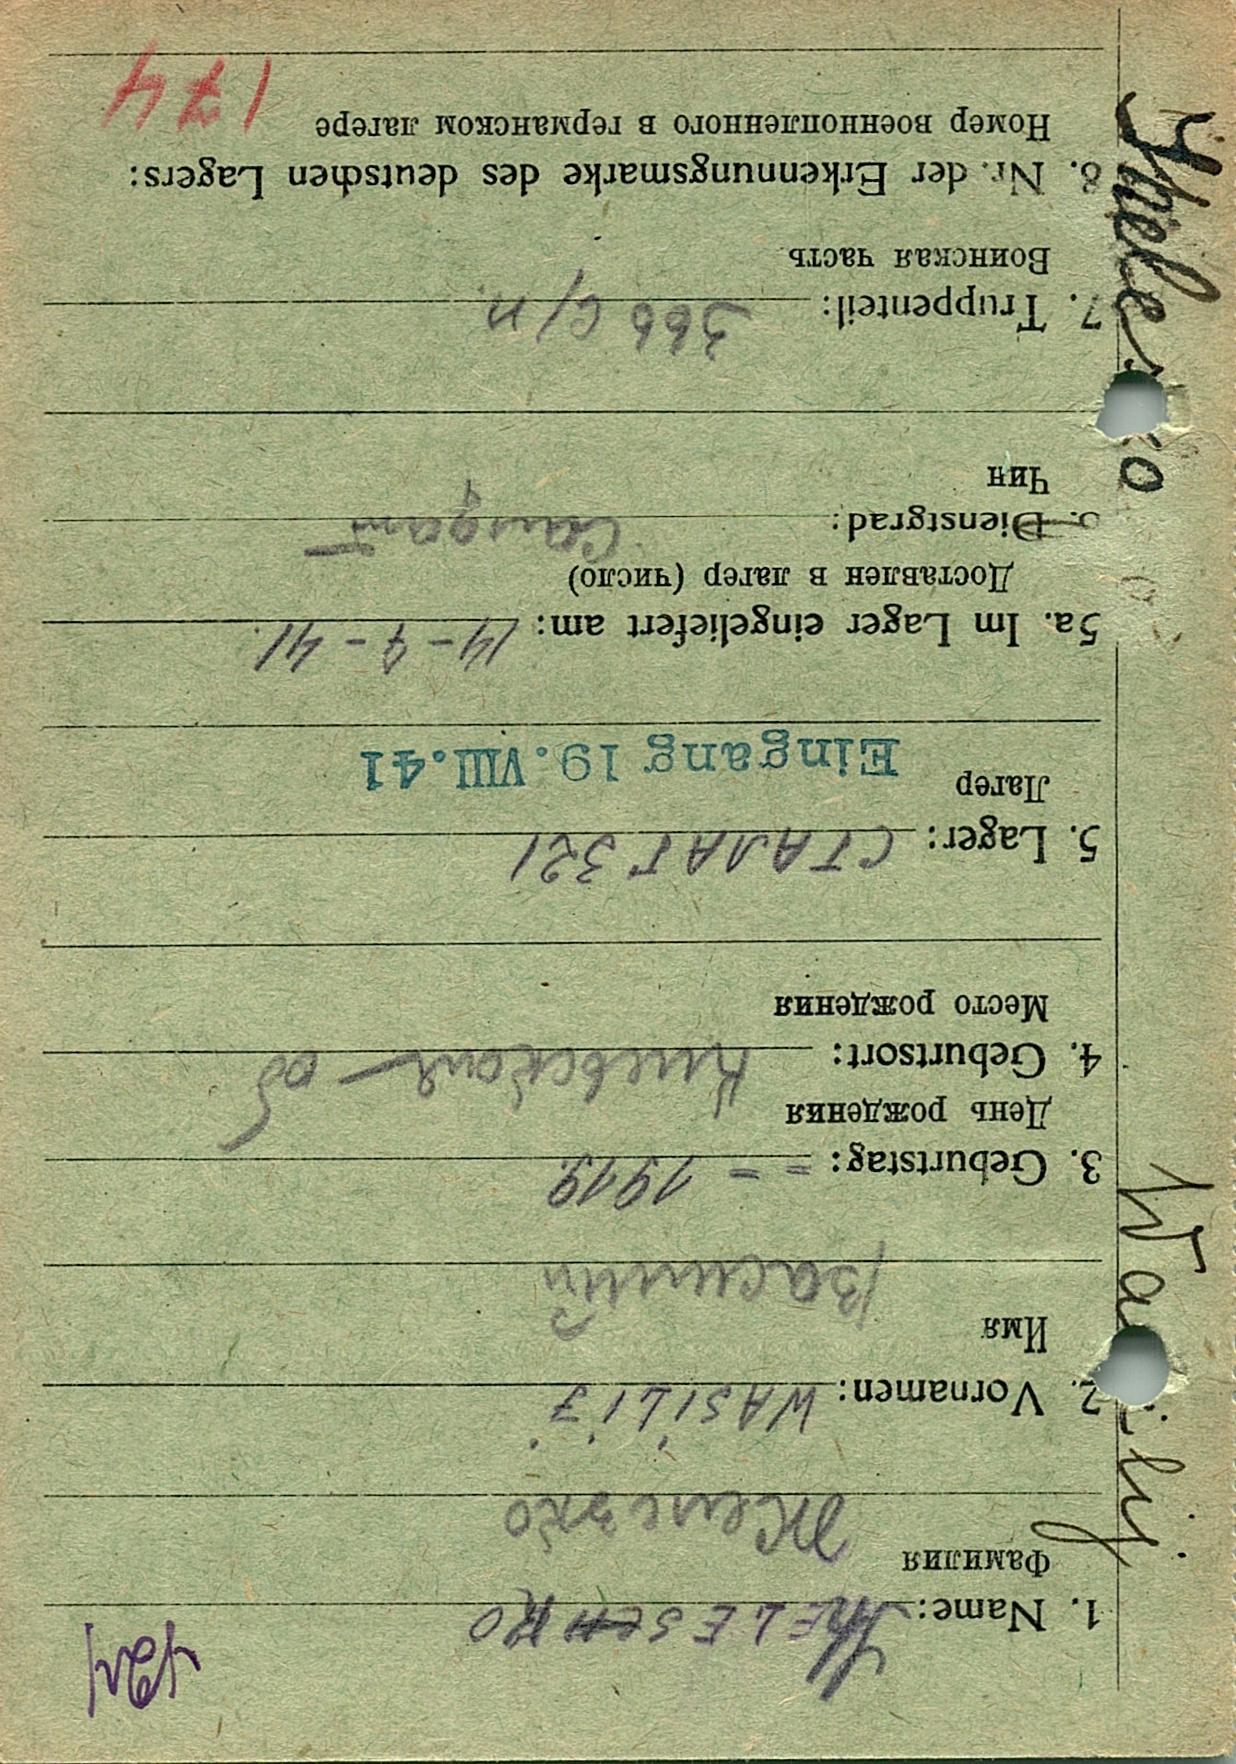 1. Name: SHELESKO
Фамилия Железко
2. Vornamen: WASILIJ
Имя Василий
3. Geburtstag: = – 1919.
День рождения
4. Geburtsort: Киевская об
Место рождения
5. Lager: СТАЛАГ 321
Лагер
Eingang 19. VIII. 41
5a. Im Lager eingeliefert am: 14 – 7 – 41.
Доставлен в лагер (число)
6. Dienstgrad:
Чин
7. Truppenteil: 366 с/п.
Воинская часть
8. Nr. der Erkennungsmarke des deutschen Lagers:
Номер военнопленного в германском лагере
174
Wasilij